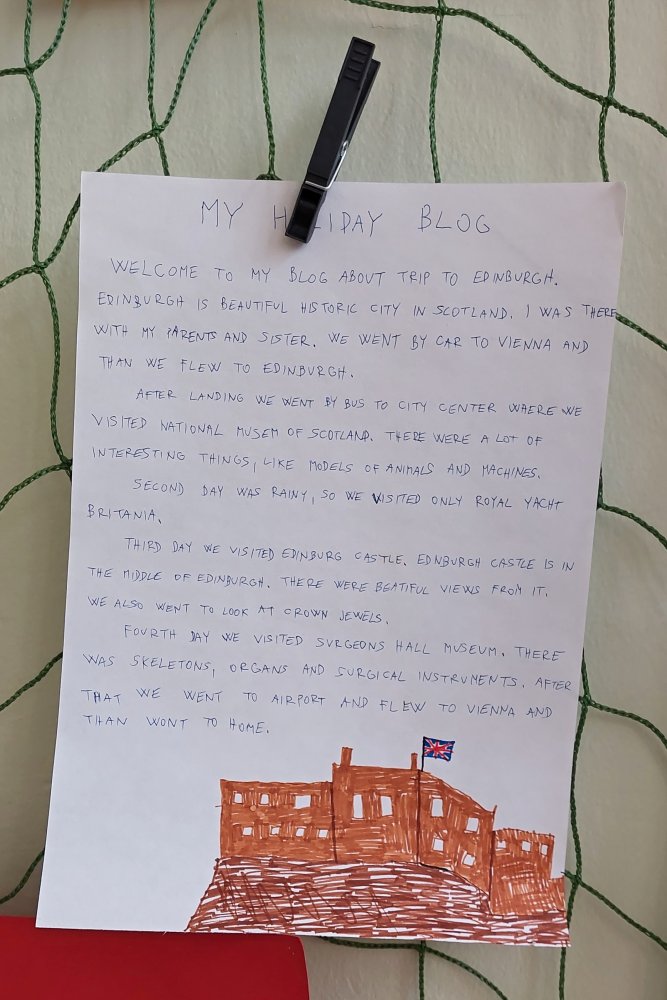 MY HOLIDAY BLOG
WELCOME TO MY BLOG ABOUT TRIP TO EDINBURGH.
EDINBURGH IS BEAUTIFUL HISTORIC CITY IN SCOTLAND. I WAS THERE
WITH MY PARENTS AND SISTER. WE WENT BY CAR TO VIENNA AND
THAN WE FLEW TO EDINBURGH.
AFTER LANDING WE WENT BY BUS TO CITY CENTER WHERE WE
VISITED NATIONAL MUSEM OF SCOTLAND. THERE WERE A LOT OF
INTERESTING THINGS, LIKE MODELS OF ANIMALS AND MACHINES.
SECOND DAY WAS RAINY, SO WE VISITED ONLY ROYAL YACHT
BRITANIA.
THIRD DAY WE VISITED EDINBURG CASTLE. EDNBURGH CASTLE IS IN
THE MIDDLE OF EDINBURGH. THERE WERE BEATIFUL VIEWS FROM IT.
WE ALSO WENT TO LOOK AT CROWN JEWELS.
FOURTH DAY WE VISITED SURGEONS HALL MUSEUM. THERE
WAS SKELETONS, ORGANS AND SURGICAL INSTRUMENTS. AFTER
THAT WE WENT TO AIRPORT AND FLEW TO VIENNA AND
THAN WONT TO HOME.